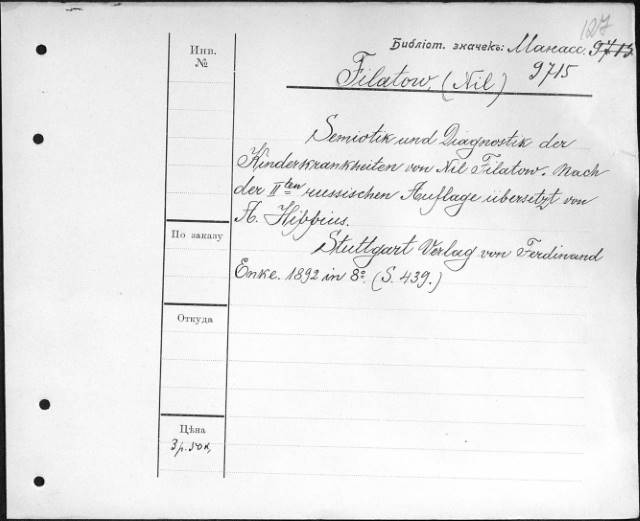 127
Библіот. значекъ: Манасс. 9713
9715
Инв.
№
Filatow, (Nil)
Semiotik und Diagnostik der
Kinderkrankheiten von Nil Filatow. Nach
der II ten russischen Auflage übersetzt von
A. Hippius.
По заказу
Stuttgart Verlag von Ferdinand
Enke. 1892 in 8º. (S. 439.)
Откуда
Цѣна
3 р. 50 к,